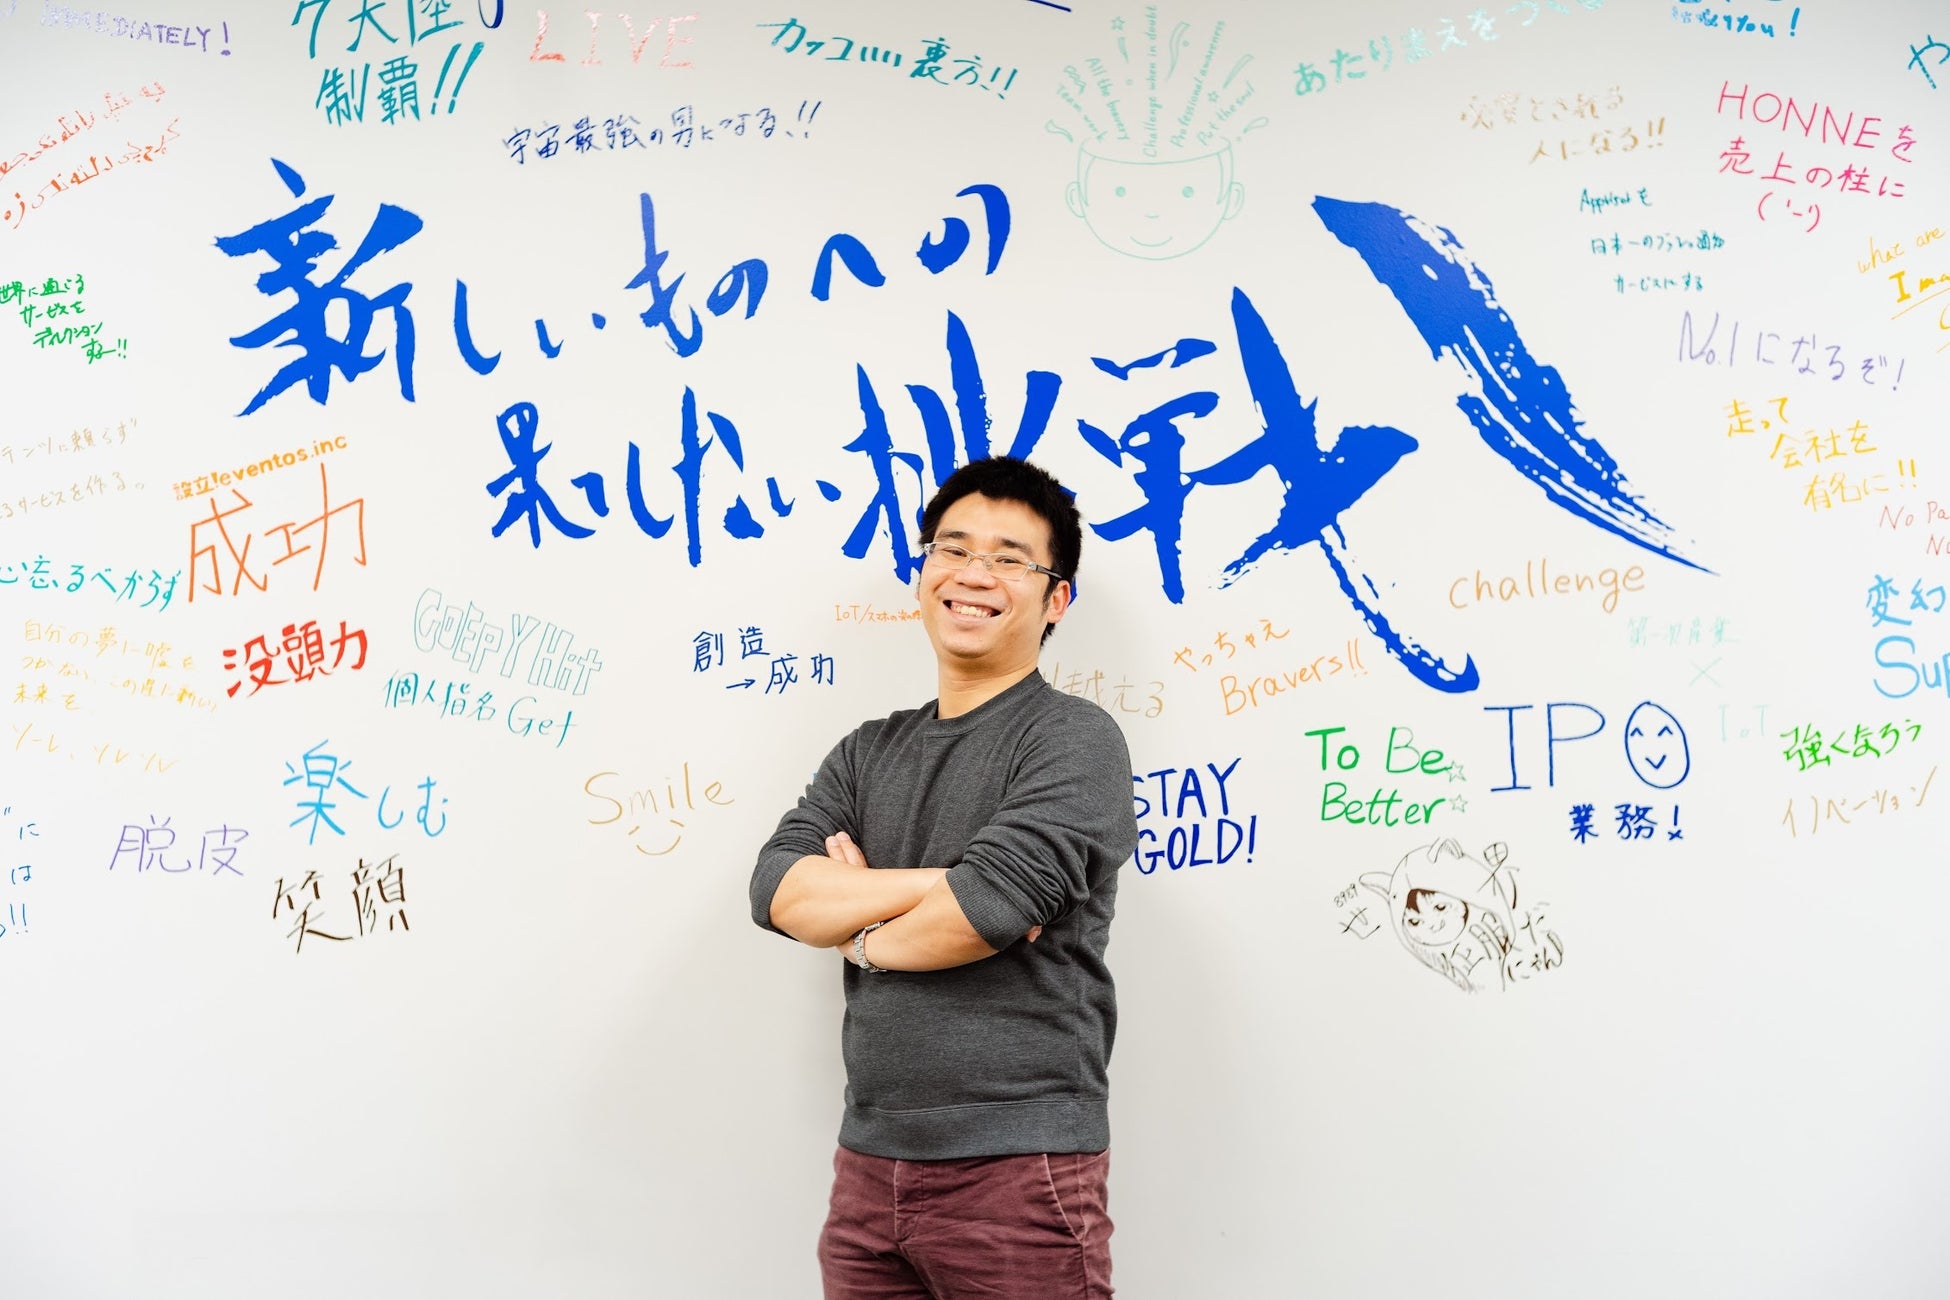 IMMEDIATELY!
7大陸
制覇!!
LIVE
カッコいい裏方!!
宇宙最強の男になる、!!
Team work
All the beauty
Challenge when in doubt
Professional awareness
Put the soul
あたり まえを
人になる!!
HONNEを
売上の柱に
新しいものへの
果てしない挑戦
世界に通じる
サービスを
ディレクション
する~!!
日本一の
サービスにする
what are
No.1になるぞ!
走って
会社を
有名に!!
設立!eventos.inc
成功
没頭力
GOEPYHit
個人指名Get
創造
→成功
やっちゃえ
Bravers!!
challenge
変幻
自分の夢に嘘を
つかない、この星に新しい
未来を
ソーレ、ソレソレ
越える
楽しむ
Smile
脱皮
笑顔
STAY
GOLD!
To Be
Better
IPO
業務!
第一次産業
×
IoT
強くなろう
イノベーション
世界
征服だ
にゃん